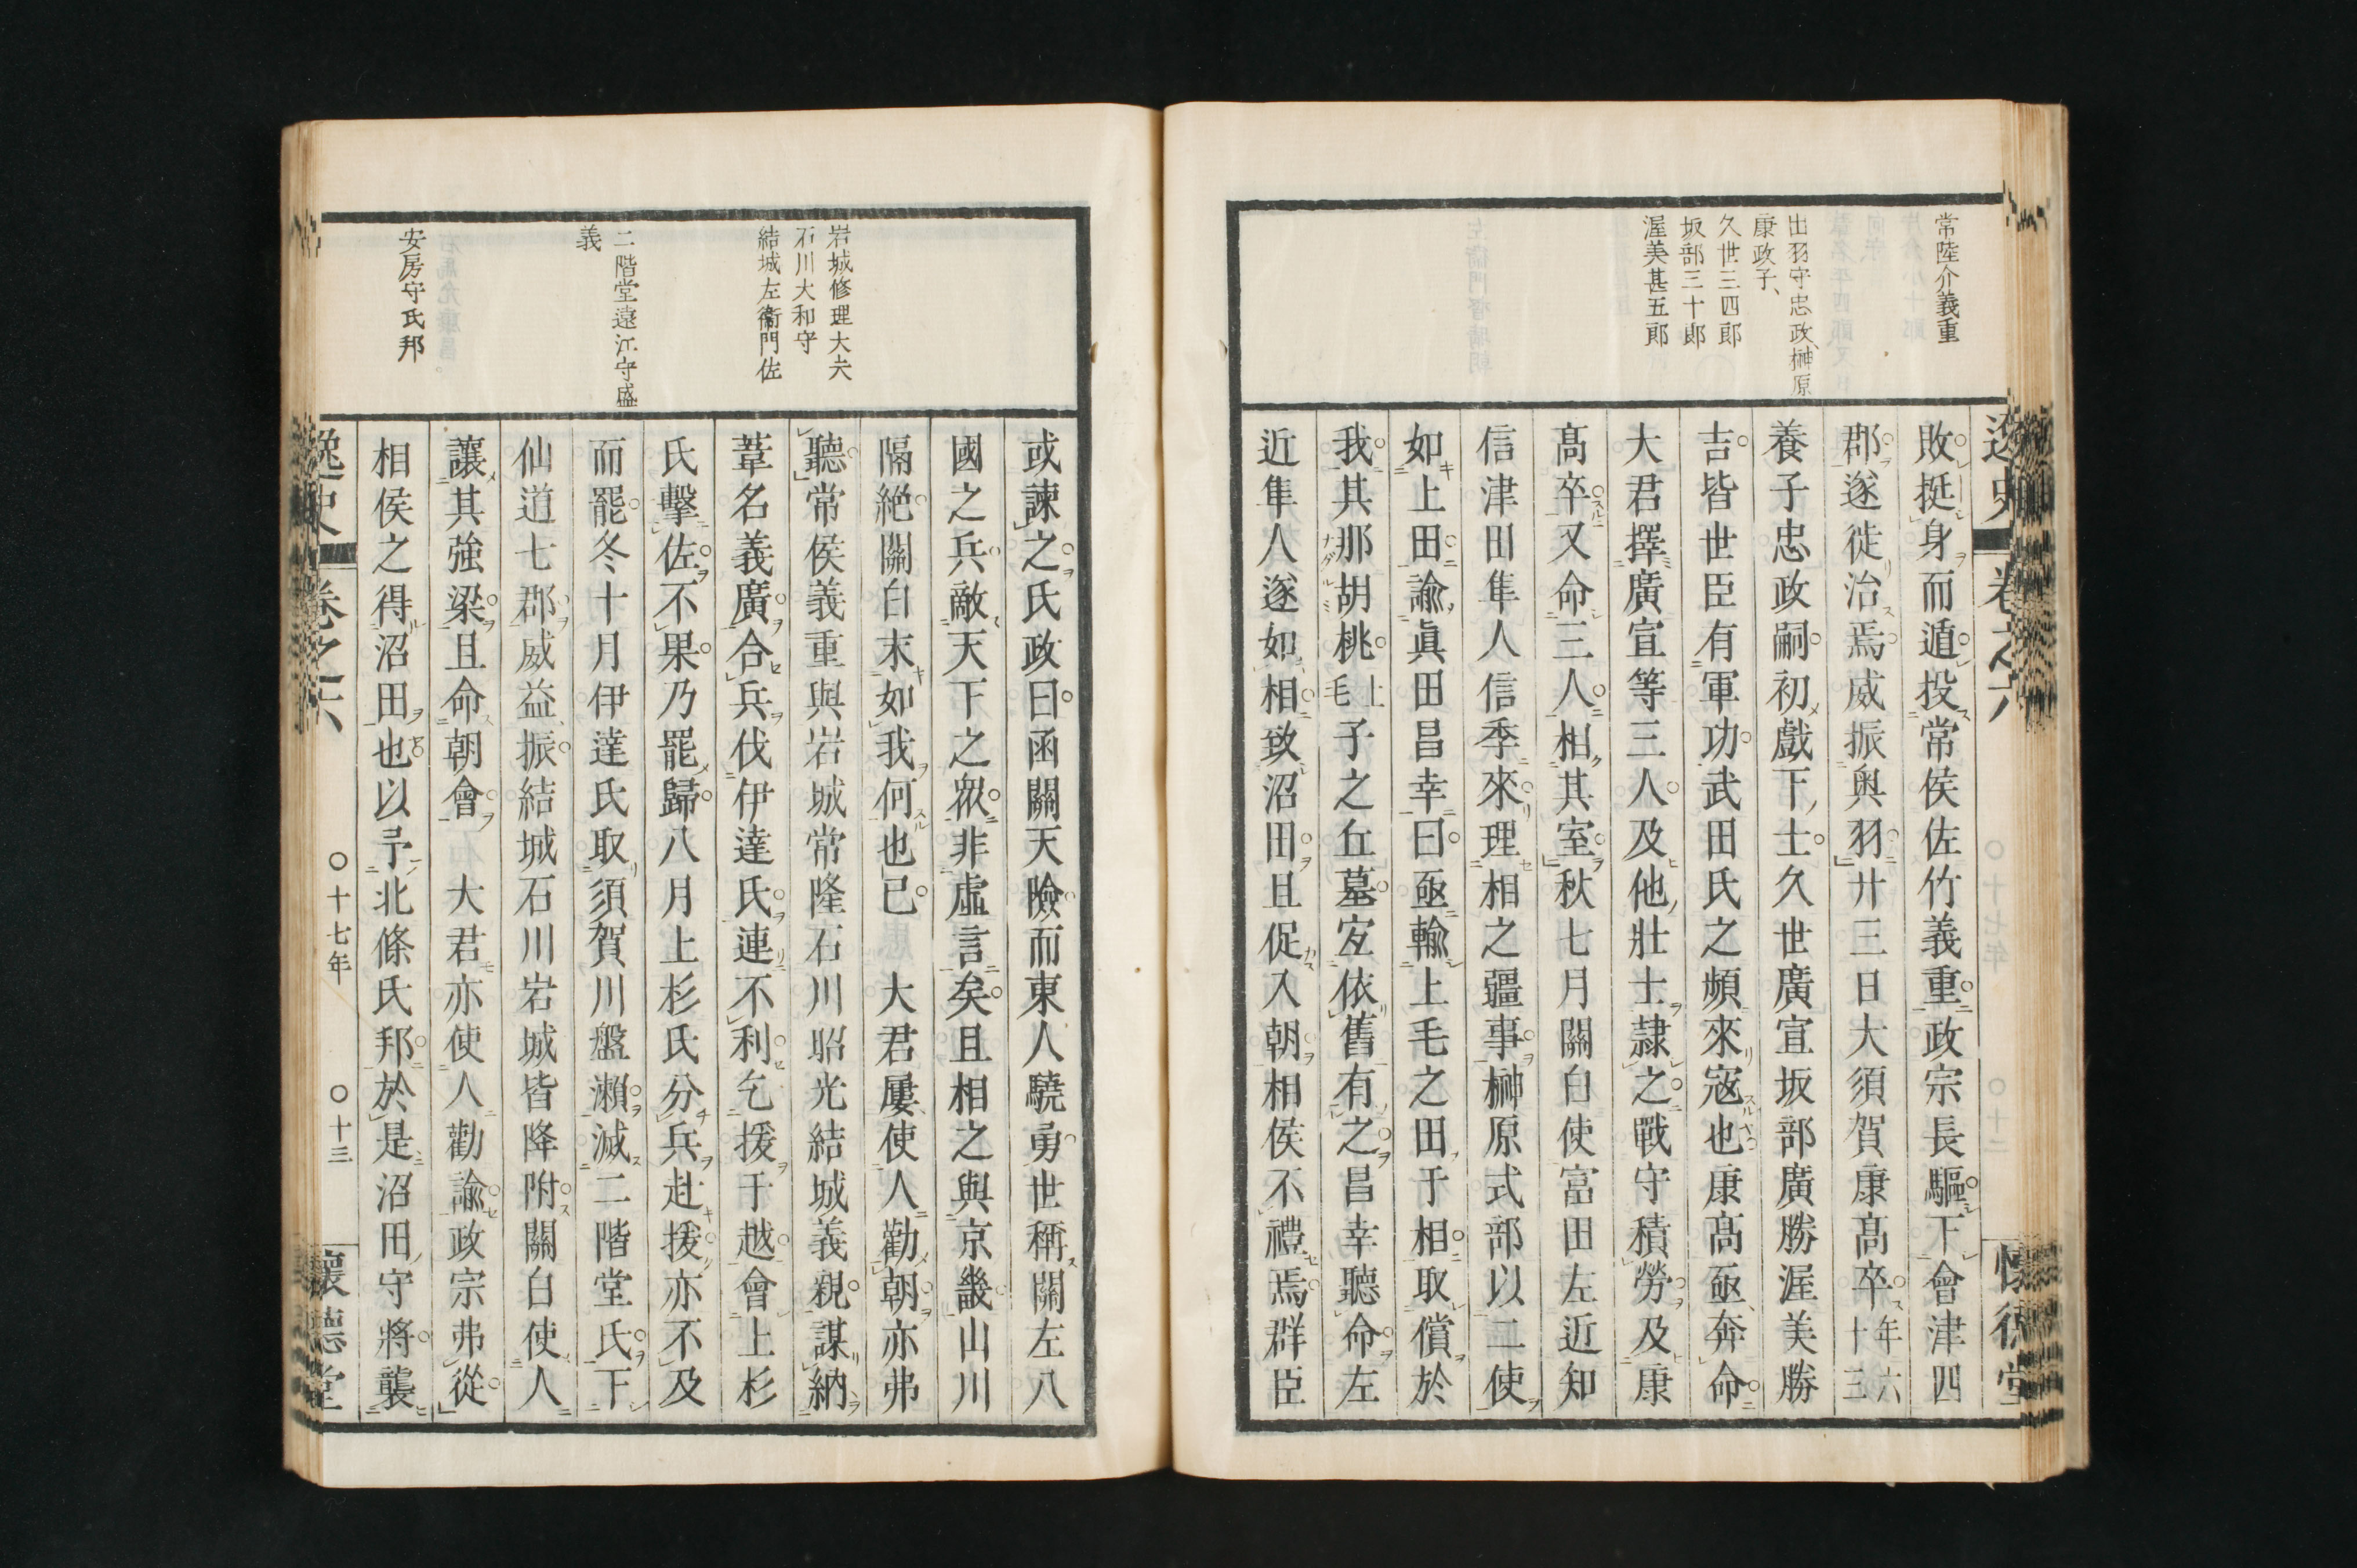 常陸介義重
出羽守忠政、榊原
康政子、
久世三四郎
坂部三十郎
渥美甚五郎
敗挺身而遁投常侯佐竹義重政宗長驅下會津四
郡遂徙治焉威振奥羽廿三日大須賀康髙卒年六十三
養子忠政嗣初戲下士久世廣宣坂部廣勝渥美勝
吉皆世臣有軍功武田氏之頻來寇也康髙亟奔命
大君擇廣宣等三人及他壯士隷之戰守積勞及康
髙卒又命三人相其室秋七月關白使富田左近知
信津田隼人信季來理相之疆事榊原式部以二使
如上田諭眞田昌幸曰亟輸上毛之田于相取償於
我其那胡桃上毛子之丘墓宐依舊有之昌幸聽命左
近隼人遂如相致沼田且促入朝相侯不禮焉群臣
岩城修理大夫
石川大和守
結城左衞門佐
二階堂遠江守盛
義
安房守氏邦
或諫之氏政曰函關天險而東人驍勇世稱關左八
國之兵敵天下之衆非虛言矣且相之與京畿山川
隔絶關白末如我何也已　大君屢使人勸朝亦弗
聽常侯義重與岩城常隆石川昭光結城義親謀納
葦名義廣合兵伐伊達氏連不利乞援于越會上杉
氏擊佐不果乃罷歸八月上杉氏分兵赴援亦不及
而罷冬十月伊達氏取須賀川盤瀬滅二階堂氏下
仙道七郡威益振結城石川岩城皆降附關白使人
讓其強梁且命朝會　大君亦使人勸諭政宗弗從
相侯之得沼田也以予北條氏邦於是沼田守將襲
逸史　卷之六　〇十七年　〇十三　懷德堂